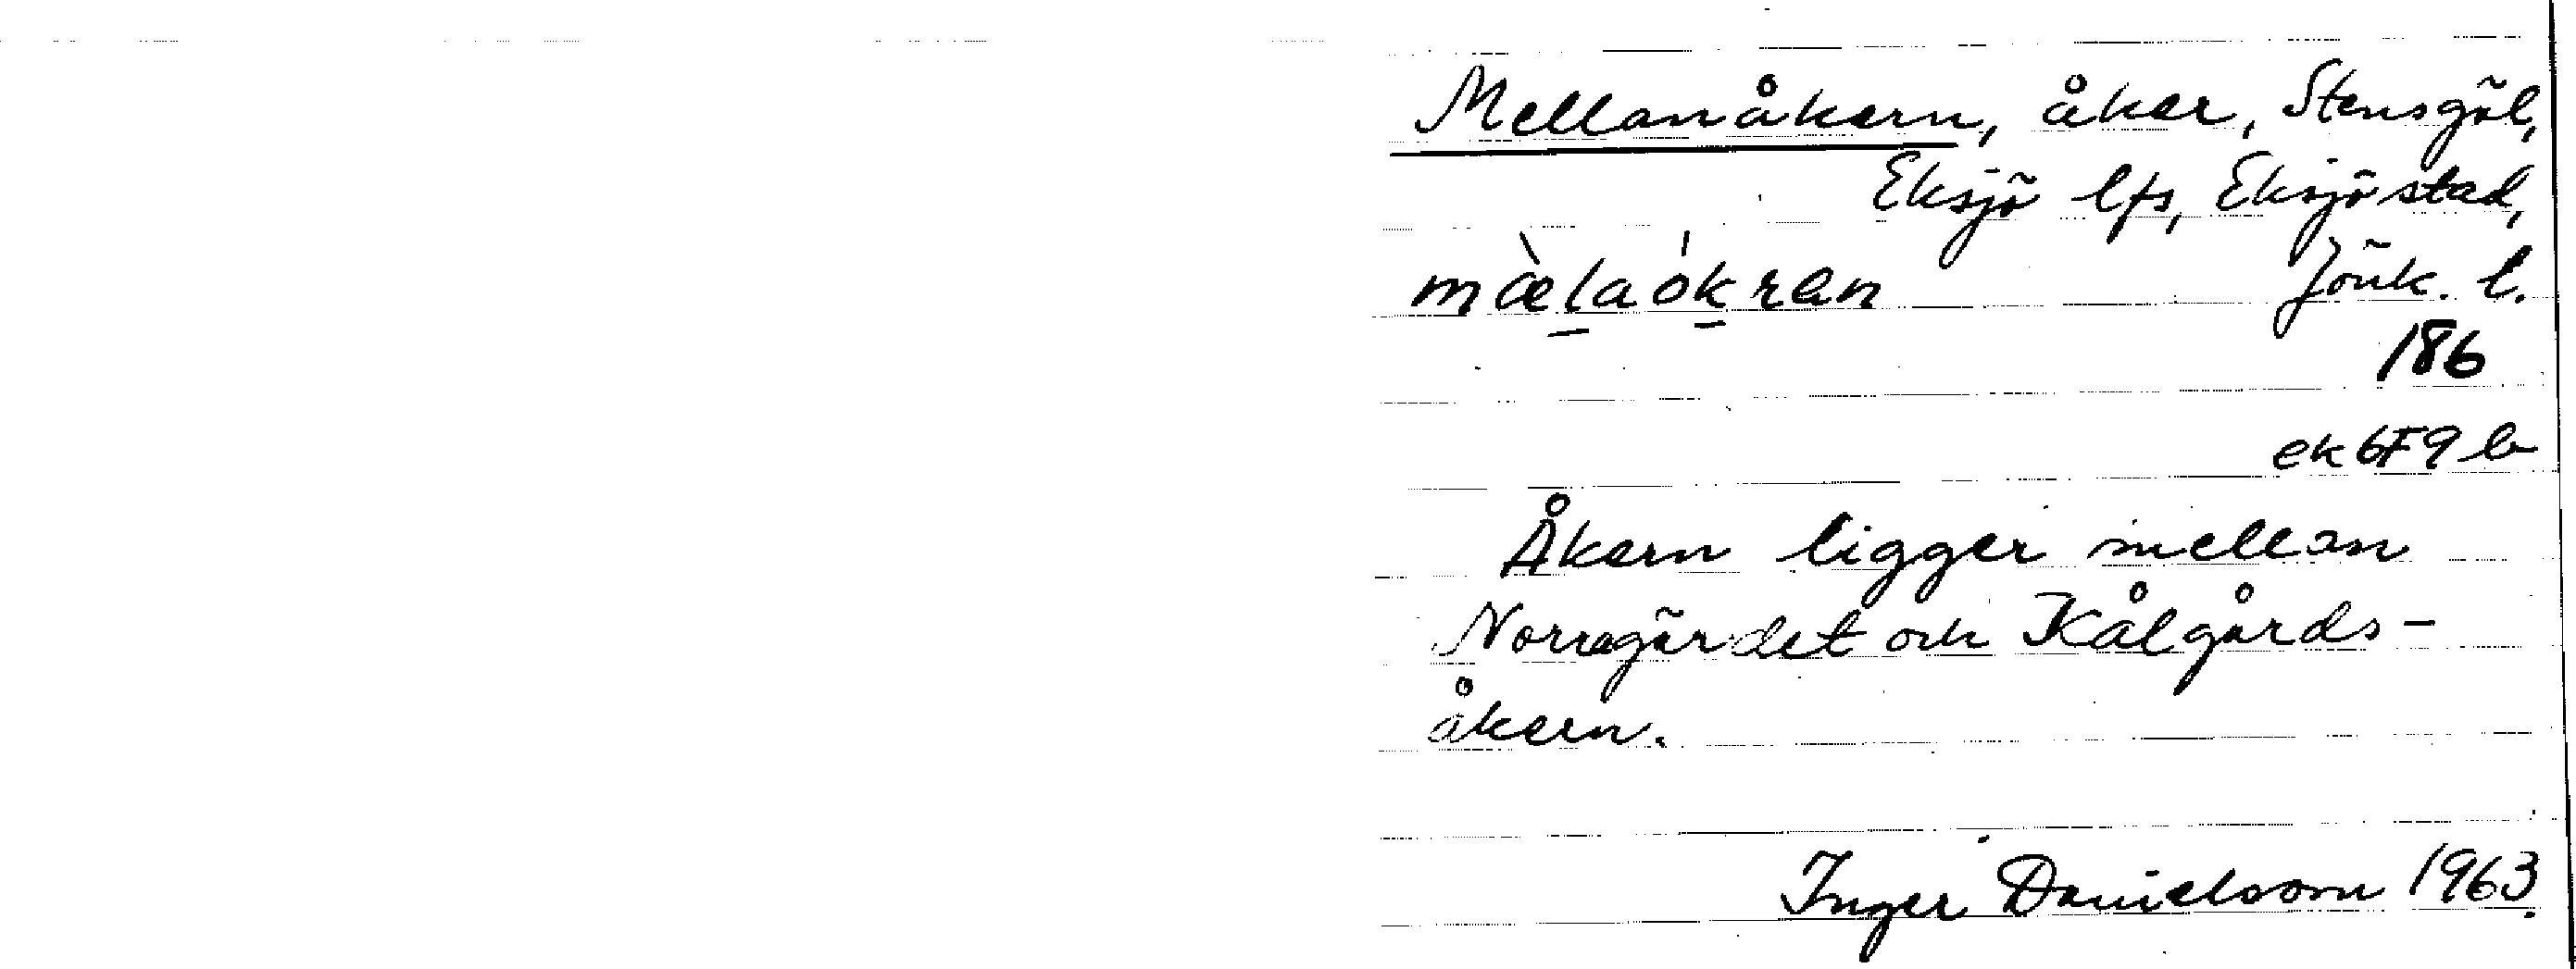 Mellanåkern, åker, Stensgöl,
Eksjö lfs, Eksjö stad,
mæ̀l̠aók̠ran Jönk. l.
186
ek 6F9b
Åkern ligger mellan
Norregärdet och Kålgårds-
åkern.
Inger Danielsson 1963.